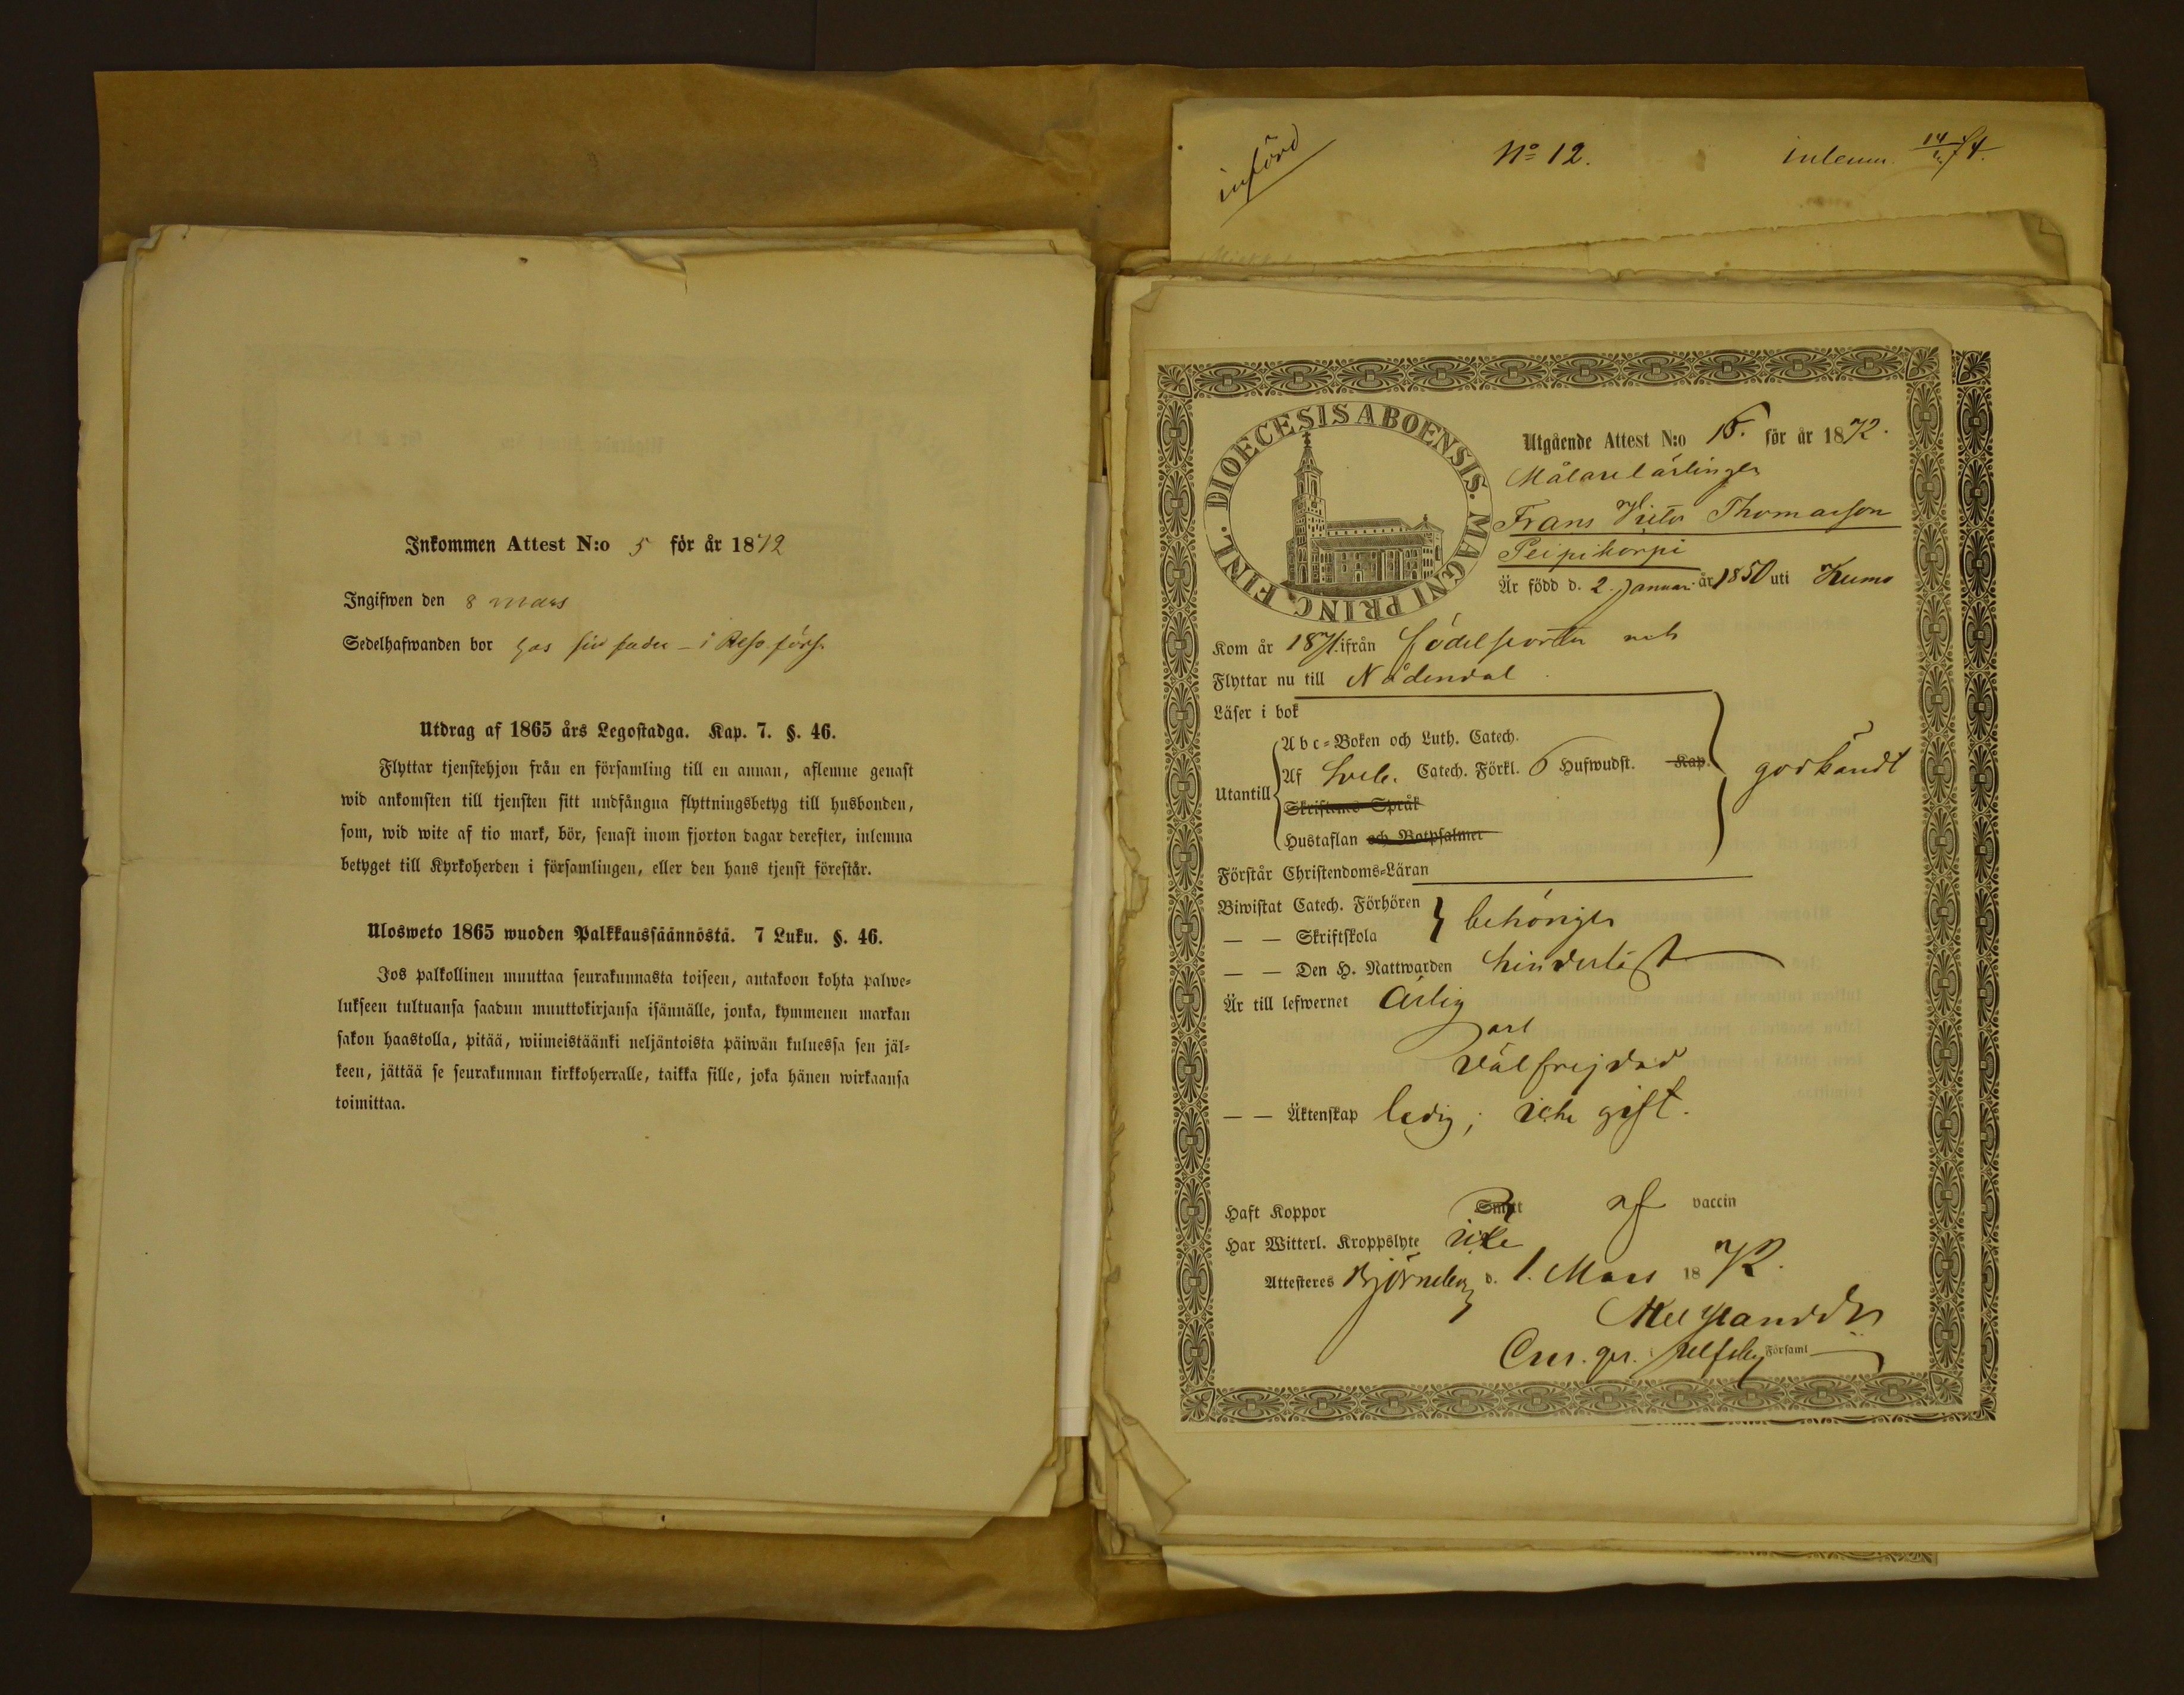 Inkommen Attest N:o 5 för år 1872
Ingifwen den 8 Mars
Sedelhafwanden bor hos sin fader – i Reso förs.
Utdrag af 1865 års Legostadga. Kap. 7. §. 46.
Flyttar tjenstehjon från en församling till en annan, aflemne genast
wid ankomsten till tjensten sitt undfångna flyttningsbetyg till husbonden,
som, wid wite af tio mark, bör, senast inom fjorton dagar derefter, inlemna
betyget till Kyrkoherden i församlingen, eller den hans tjenst förestår.
Ulosweto 1865 wuoden Palkkaussäännöstä. 7 Luku. §. 46.
Jos palkollinen muuttaa seurakunnasta toiseen, antakoon kohta palwe-
lukseen tultuansa saadun muuttokirjansa isännälle, jonka, kymmenen markan
sakon haastolla, pitää, wiimeistäänki neljäntoista päiwän kuluessa sen jäl-
keen, jättää se seurakunnan kirkkoherralle, taikka sille, joka hänen wirkaansa
toimittaa.
införd
No 12.
inlemn. 74.
DIOECESIS ABOENSIS. MAGNI PRINC. FINL.
Utgående Attest N:o 15. för år 1872.
Målarelärlingen
Frans Victor Thomasson
Peipikorpi
Är född d. 2. Januari år 1850 uti Kumo
Kom år 1871. ifrån födelseorten och
Flyttar nu till Nådendal
Läser i bok
Utantill
Abc-Boken och Luth. Catech.
Af Sveb. Catech. Förkl. 6 Hufwudst. Kap.
Skriftenes Språk
Hustaflan och Botpsalmer
godkändt
Förstår Christendoms-Läran
Biwistat Catech. Förhören
— — Skriftskola
behörigen
— — Den H. Nattwarden hinderlöst
Är till lefwernet Ärlig
och
välfrejdad
— — Äktenskap ledig; icke gift.
Haft Koppor Smitt af vaccin
Har Witterl. Kroppslyte icke
Attesteres Björneborg d. 1. Mars 1872.
Ulfsby Församl